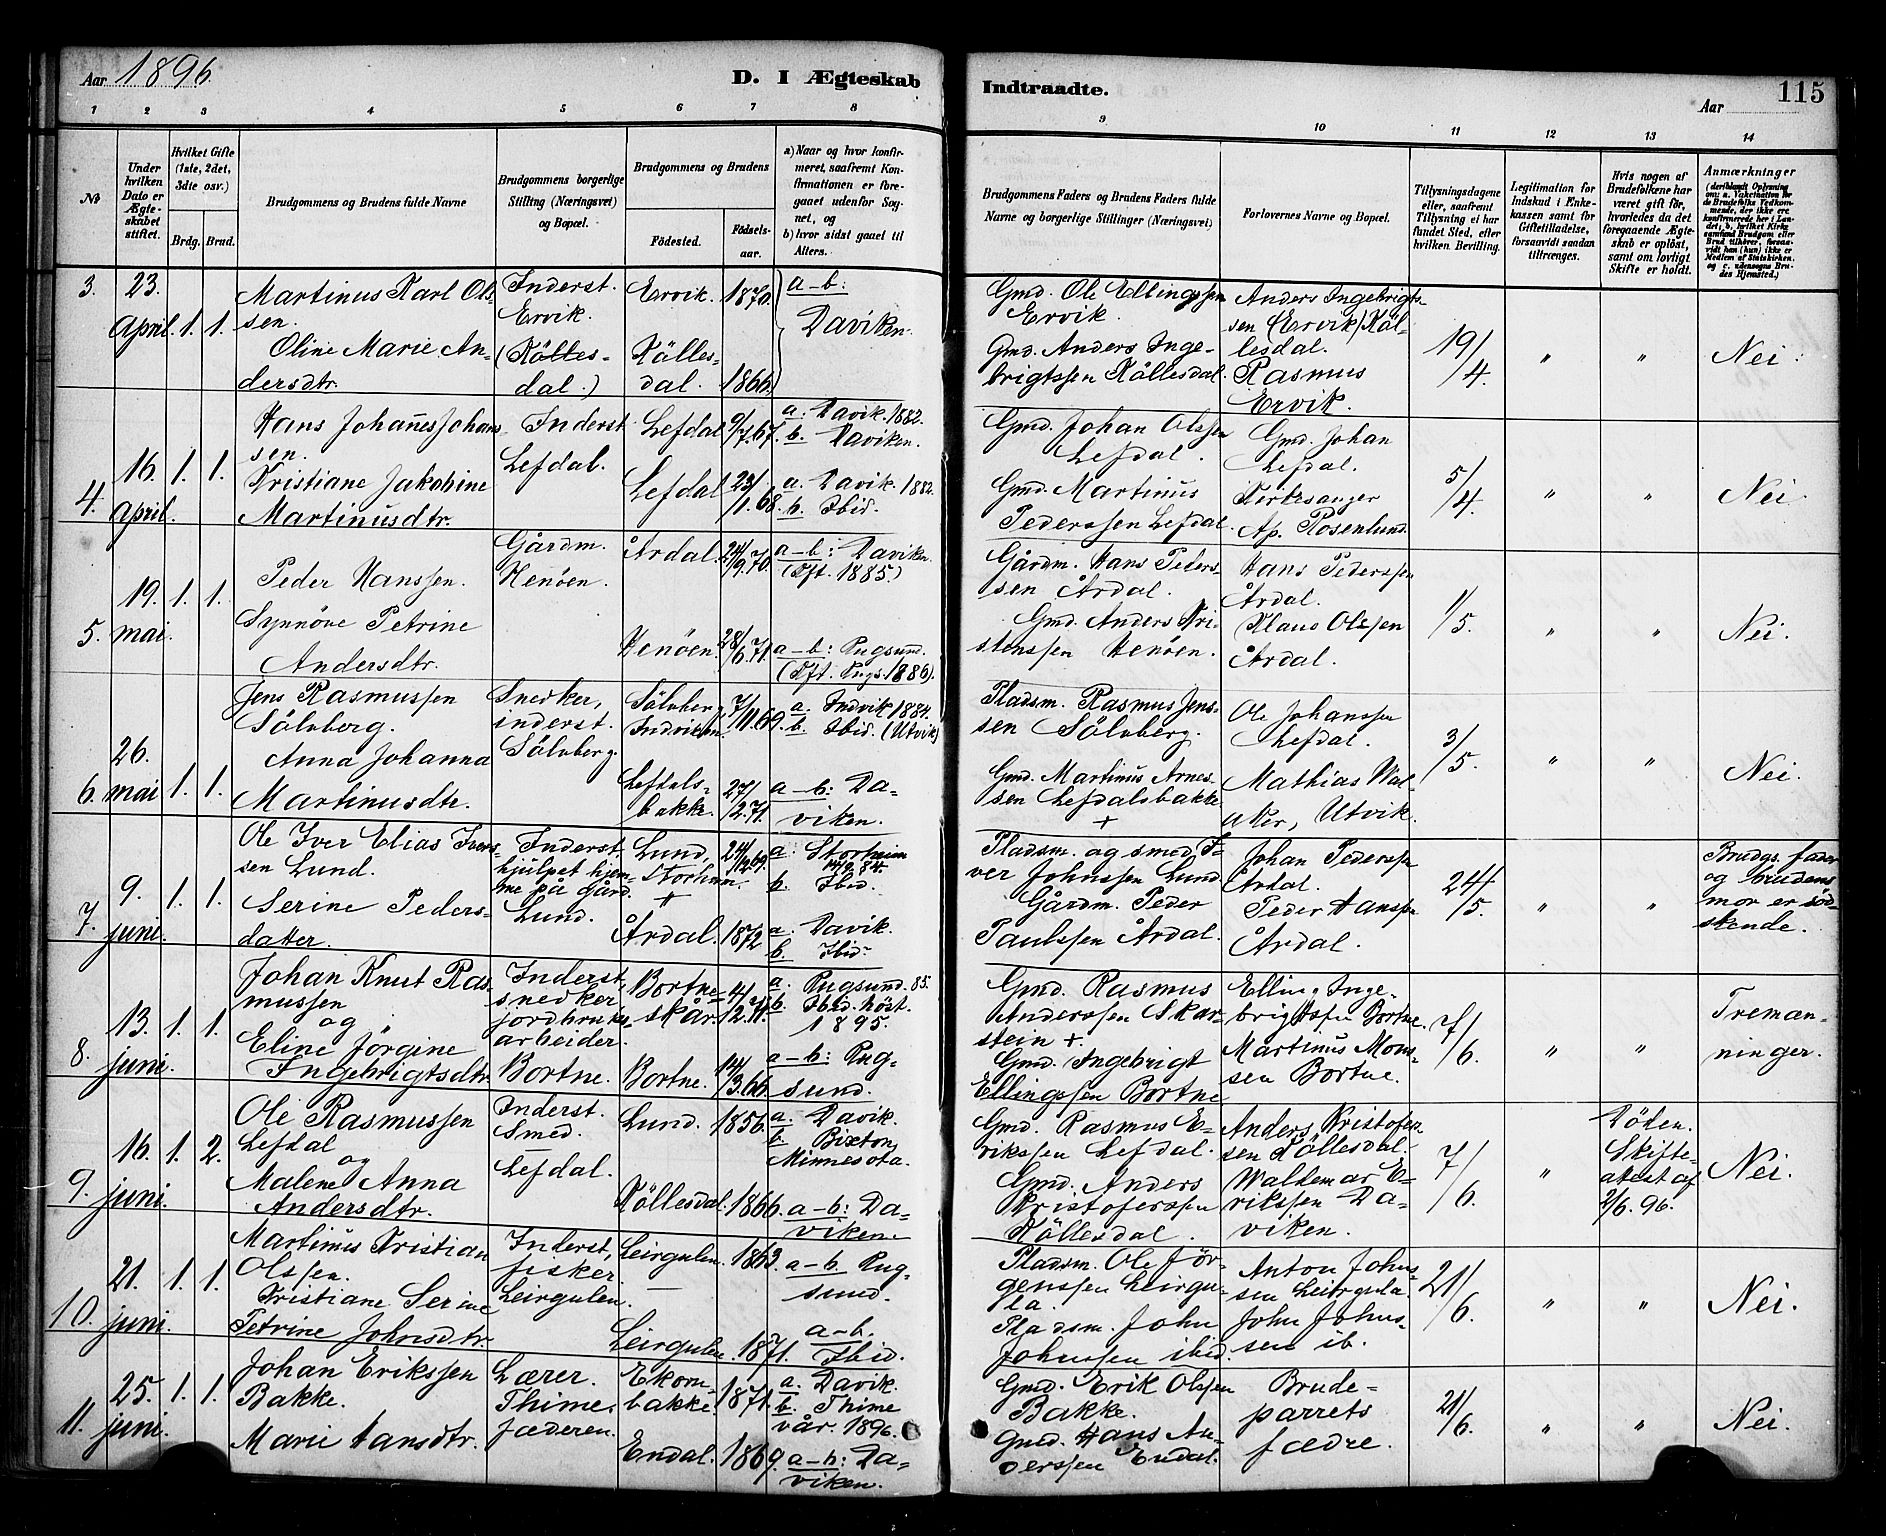 Aar 1896
D. I Ægteskab Indtraadte.
Aar
115
1 2 3 4 5 6 7 8 9 10 11 12 13 14
No
Under hvilken Dato er Ægteskabet stiftet.
Hvilket Gifte (1ste, 2det, 3dte osv.)
Brdg. Brud.
Brudgommens og Brudens fulde Navne
Brudgommens borgerlige Stilling (Næringsvei) og Bopæl.
Brudgommens og Brudens
Fødested.
Fødselsaar.
a) Naar og hvor konfirmeret, saafremt Konfirmationen er foregaaet udenfor Sognet, og
b) hvor sidst gaaet til Alters.
Brudgommens Faders og Brudens Faders fulde Navne og borgerlige Stillinger (Næringsvei)
Forlovernes Navne og Bopæl.
Tillysningsdagene eller, saafremt Tillysning ei har fundet Sted, efter hvilken Bevilling.
Legitimation for Indskud i Enkekassen samt for Giftetilladelse, forsaavidt saadan tiltrænges.
Hvis nogen af Brudefolkene har været gift før, hvorledes da det foregaaende Ægteskab er opløst, samt om lovligt Skifte er holdt.
Anmærkninger
3. 23. April. 1. 1.
Martinus Karl Olssen.
Oline Marie Andersdtr.
Inderst. Ervik. (Kölles-dal.)
Ervik. 1870.
Kölles-dal. 1866.
a-b: Daviken.
Gmd. Ole Ellingssen Ervik.
Gmd. Anders Ingebrigtssen Köllesdal.
Anders Ingebrigtssen (Ervik) Köllesdal.
Rasmus Ervik.
19/4. " " Nei.
4. 16. April. 1. 1.
Hans Johannes Johanssen.
Kristiane Jakobine Martinusdtr.
Inderst Lefdal.
Lefdal 9/7.67.
Lefdal 23/1.68.
a: Davik. 1882.
b. Daviken.
a. Davik. 1882.
b. Ibid.
Gmd. Johan Olssen Lefdal.
Gmd. Martinus Pederssen Lefdal.
Gmd. Johan Lefdal.
Kirkesanger Ap. Rosenlund.
5/4. " " Nei.
5. 19. mai. 1. 1.
Peder Hanssen.
Synnöve Petrine Andersdtr.
Gårdm. Henöen.
Årdal. 24/9.70.
Henöen. 28/6.71.
a-b: Daviken (Kft. 1885.)
a-b: Rugsund. (Kft. Rugs. 1886).
Gårdm. Hans Pederssen Årdal.
Gmd. Anders Kristenssen Henöen.
Hans Pederssen Årdal.
Klaus Olssen Årdal.
1/5. " " Nei.
6. 26. mai 1. 1.
Jens Rasmussen Sölvberg.
Anna Johanna Martinusdtr.
Snedker, inderst. Sölvberg.
Sölvberg, Indviken. 7/11.69.
Lefdalsbakke. 27/2.71.
a. Indvik 1884.
b. Ibid. (Utvik)
a-b: Daviken.
Pladsm. Rasmus Jenssen Sölvberg.
Gmd. Martinus Arnessen Lefdalsbakke +
Ole Johanssen Lefdal.
Mathias Walaker, Utvik.
3/5. " " Nei.
7. 9. juni. 1. 1.
Ole Iver Elias Iverssen Lund.
Serine Pedersdatter.
Inderst, hjulpet hjemme på gård. Lund.
Lund, Storheim. + 24/12.69.
Årdal. 1872
a. Storheim 14/9.84.
b. Ibid.
a. Davik.
b. Ibid.
Pladsm. og smed Iver Johnssen Lund.
Gårdm. Peder Paulssen Årdal.
Johan Pederssen Årdal.
Peder Hanssen Årdal.
24/5. " "
Brudgs. fader og brudens mor er södskende.
8. 13. juni. 1. 1.
Johan Knut Rasmussen og
Eline Jörgine Ingebrigtsdtr.
Inderst, snedker, jordbruksarbeider. Bortne.
Bortneskår. 4/12.71.
Bortne. 14/3.66.
a. Rugsund. 85.
b. Ibid. höst. 1895.
a-b: Rugsund.
Gmd. Rasmus Anderssen Skarstein +.
Gmd. Ingebrigt Ellingssen Bortne
Elling Ingebrigtssen Bortne.
Martinus Monssen Bortne.
7/6. " "
Tremanninger.
9. 16. juni. 1. 2.
Ole Rasmussen Lefdal og
Malene Anna Andersdtr.
Inderst. Smed. Lefdal.
Lund. 1856.
Köllesdal. 1866.
a. Davik.
b. Bixton, Minnesota.
a-b: Daviken.
Gmd. Rasmus Erikssen Lefdal.
Gmd. Anders Kristoferssen Köllesdal.
Anders Kristoferssen Köllesdal.
Waldemar Erikssen Daviken.
7/6. "
Döden. Skifteattest af 2/6.96.
Nei.
10. 21. juni. 1. 1.
Martinus Kristian Olssen.
Kristiane Serine Petrine Johnsdtr.
Inderst, fisker. Leirgulen.
Leirgulen. 1863.
Leirgulen. 1871.
a-b. Rugsund.
a-b. Ibid.
Pladsm. Ole Jörgenssen Leirgulpla.
Pladsm. John Johnssen ibid.
Anton Johnssen Leirgula.
John Johnssen ib.
21/6. " " Nei.
11. 25. juni. 1. 1.
Johan Erikssen Bakke.
Marie Hansdtr.
Lærer. Thime. Jæderen.
Ekornbakke. 1871.
Endal. 1869.
a: Davik.
b. Thime vår. 1896.
a-b: Daviken.
Gmd. Erik Olssen Bakke.
Gmd. Hans Anderssen Endal.
Brudeparrets fædre.
21/6. " " Nei.